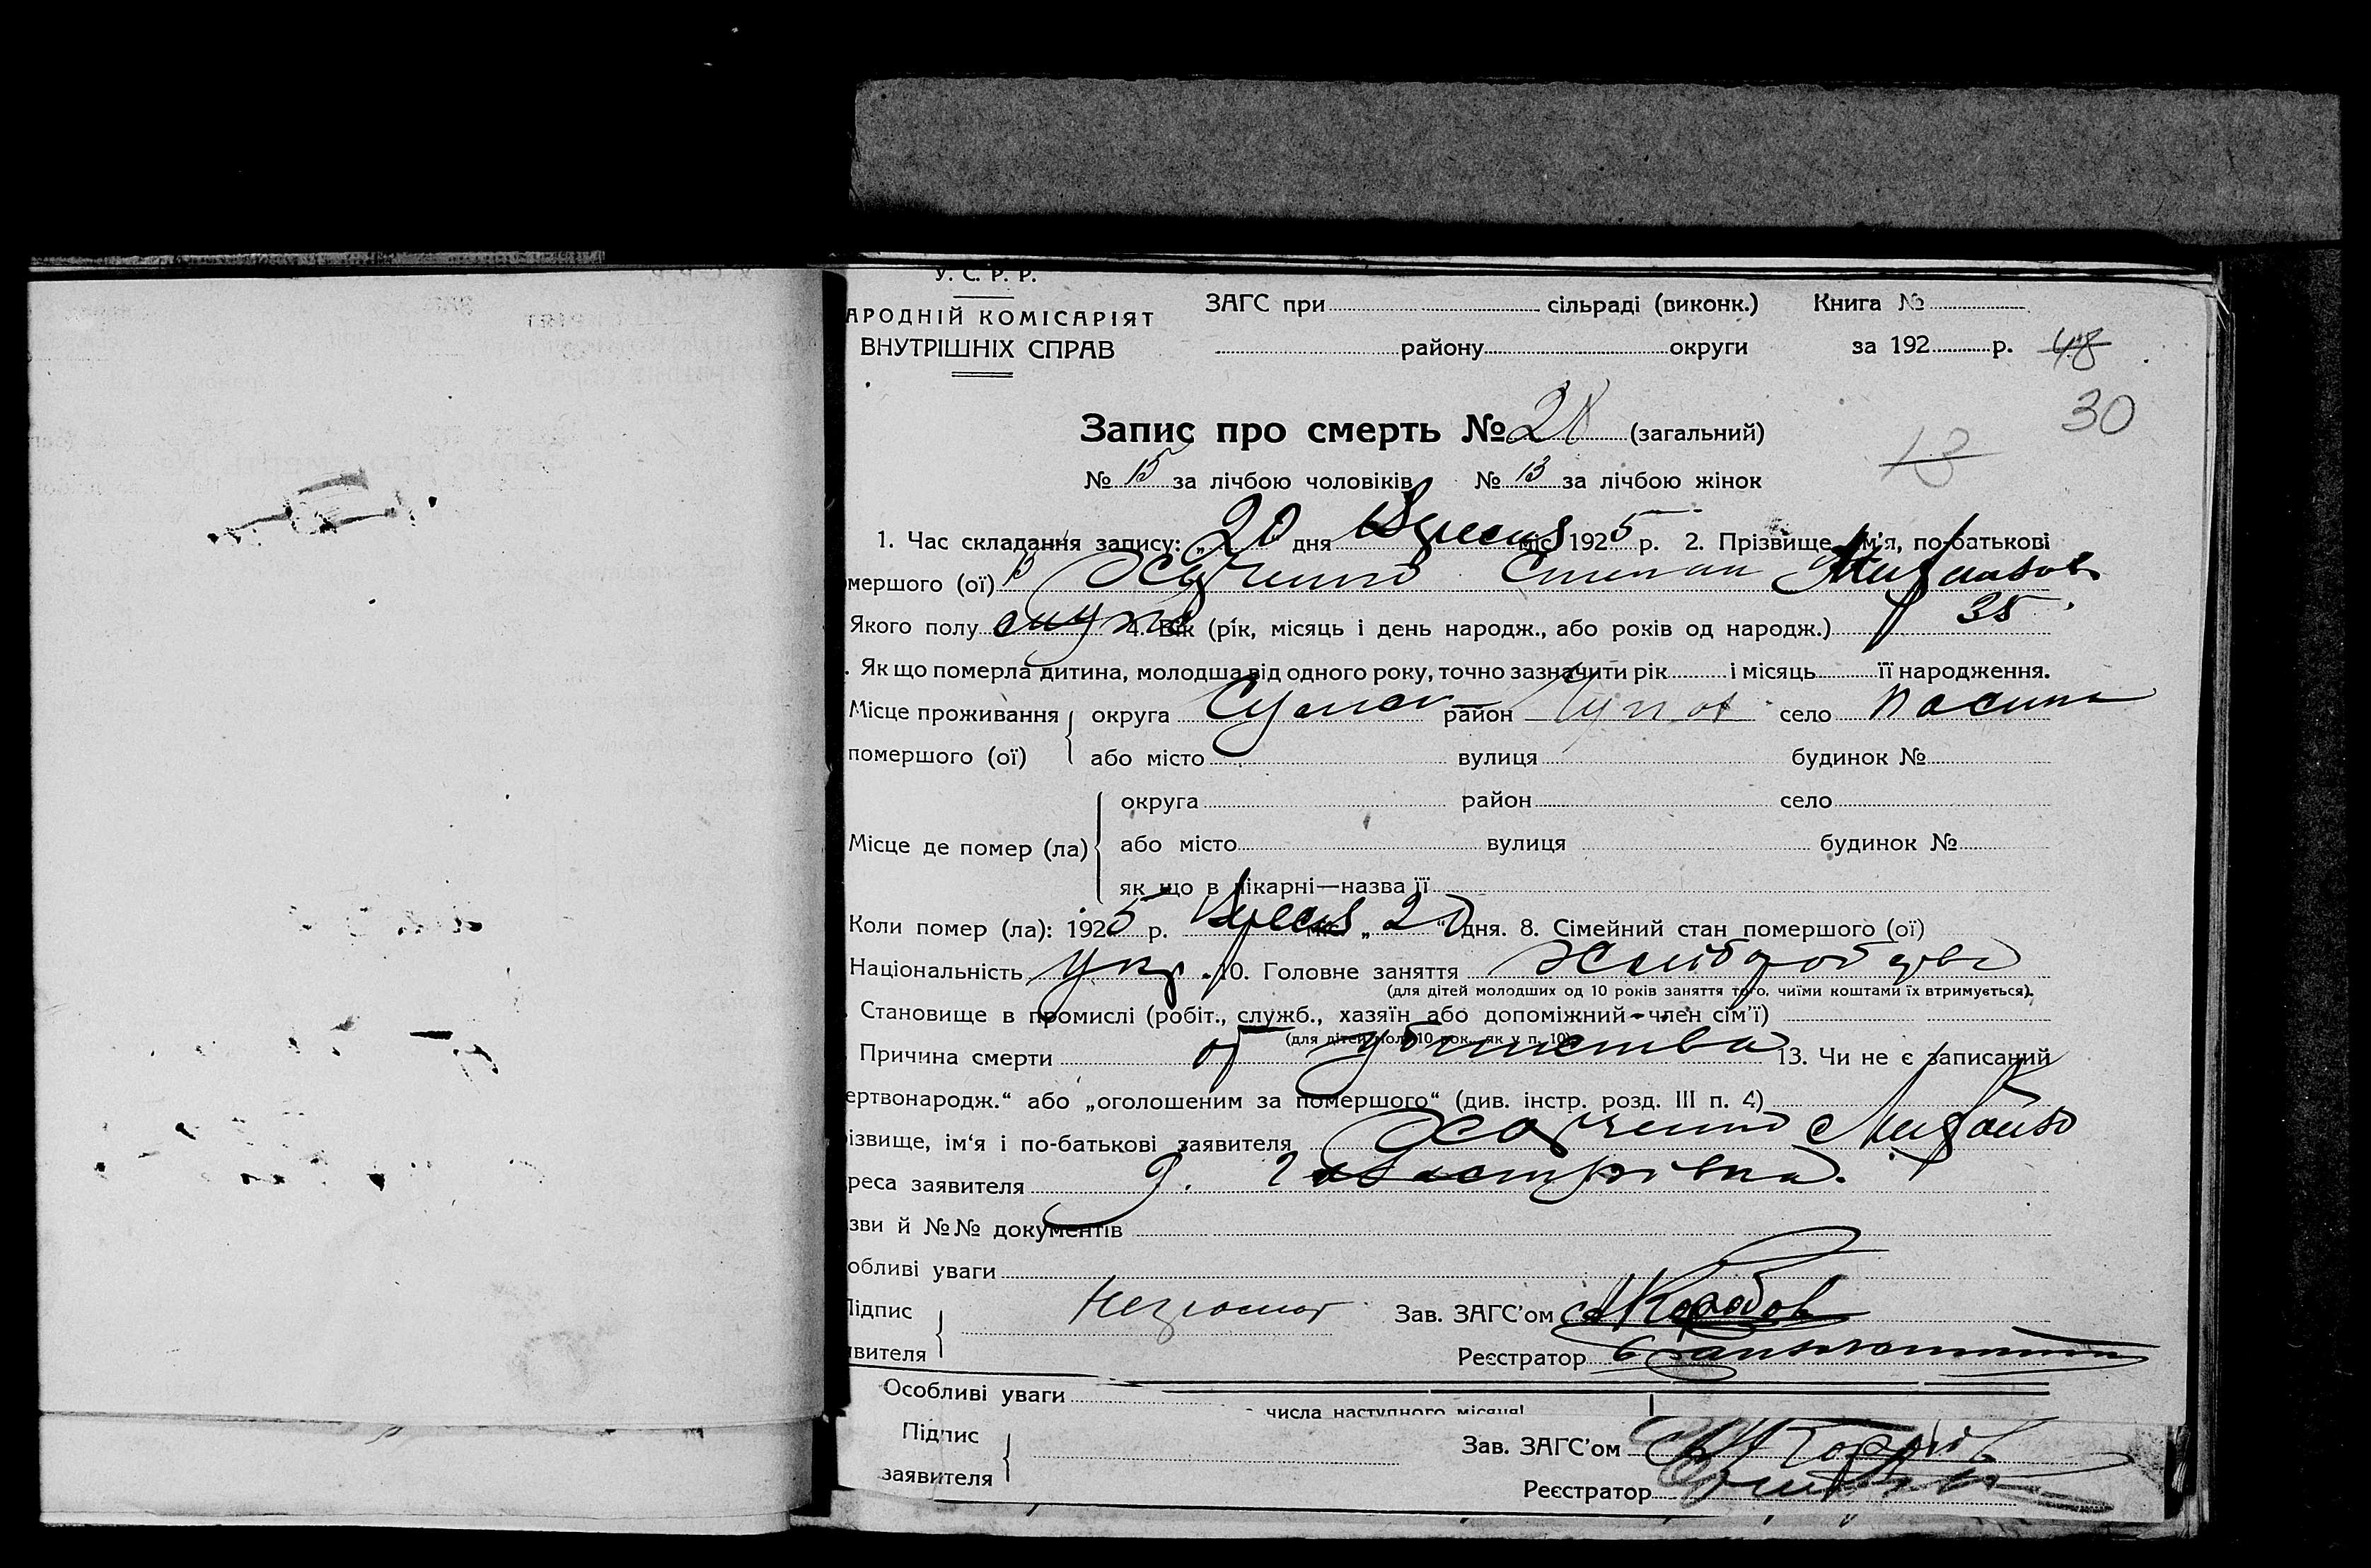 У. С. Р. Р.
АРОДНІЙ КОМІСАРІЯТ
ВНУТРІШНІХ СПРАВ
ЗАГС при сільраді (виконк.) Книга №
району округи за 192 р. 48
30
Запис про смерть № 28 (загальний)
13
№ 15 за лічбою чоловіків № 13 за лічбою жінок
1. Час складання запису: „20" дня Вересня міс. 1925 р. 2. Прізвище, ім'я, по-батькові
мершого (ої) Степан
Якого полу муже 4. Вік (рік, місяць і день народж., або років од народж.) 35
. Як що померла дитина, молодша від одного року, точно зазначити рік і місяць її народження.
Місце проживання округа Сумск район село
померш​ого (ої) або місто вулиця будинок №
округа район село
Місце де помер (ла) або місто вулиця будинок №
як що в лікарні—назва її
Коли помер (ла): 1925 р. Вересня міс. „20" дня. 8. Сімейний стан помершого (ої)
Національність укр. 10. Головне заняття Хліборобство
(для дітей молодших од 10 років заняття того, чиїми коштами їх втримується).
. Становище в промислі (робіт., служб., хазяїн або допоміжний член сім'ї)
(для дітей мол. 10 рок., як у п. 10)
. Причина смерти от убийства 13. Чи не є записаний
ертвонародж.“ або „оголошеним за помершого“ (див. інстр. розд. III п. 4)
різвище, ім‘я і по-батькові заявителя
реса заявителя
зви й №№ документів
обливі уваги
Підпис Неграмот Зав. ЗАГС'ом
явителя Реєстратор
Особливі уваги
числа наступного місяця!
Підпис Зав. ЗАГС'ом
заявителя Реєстратор